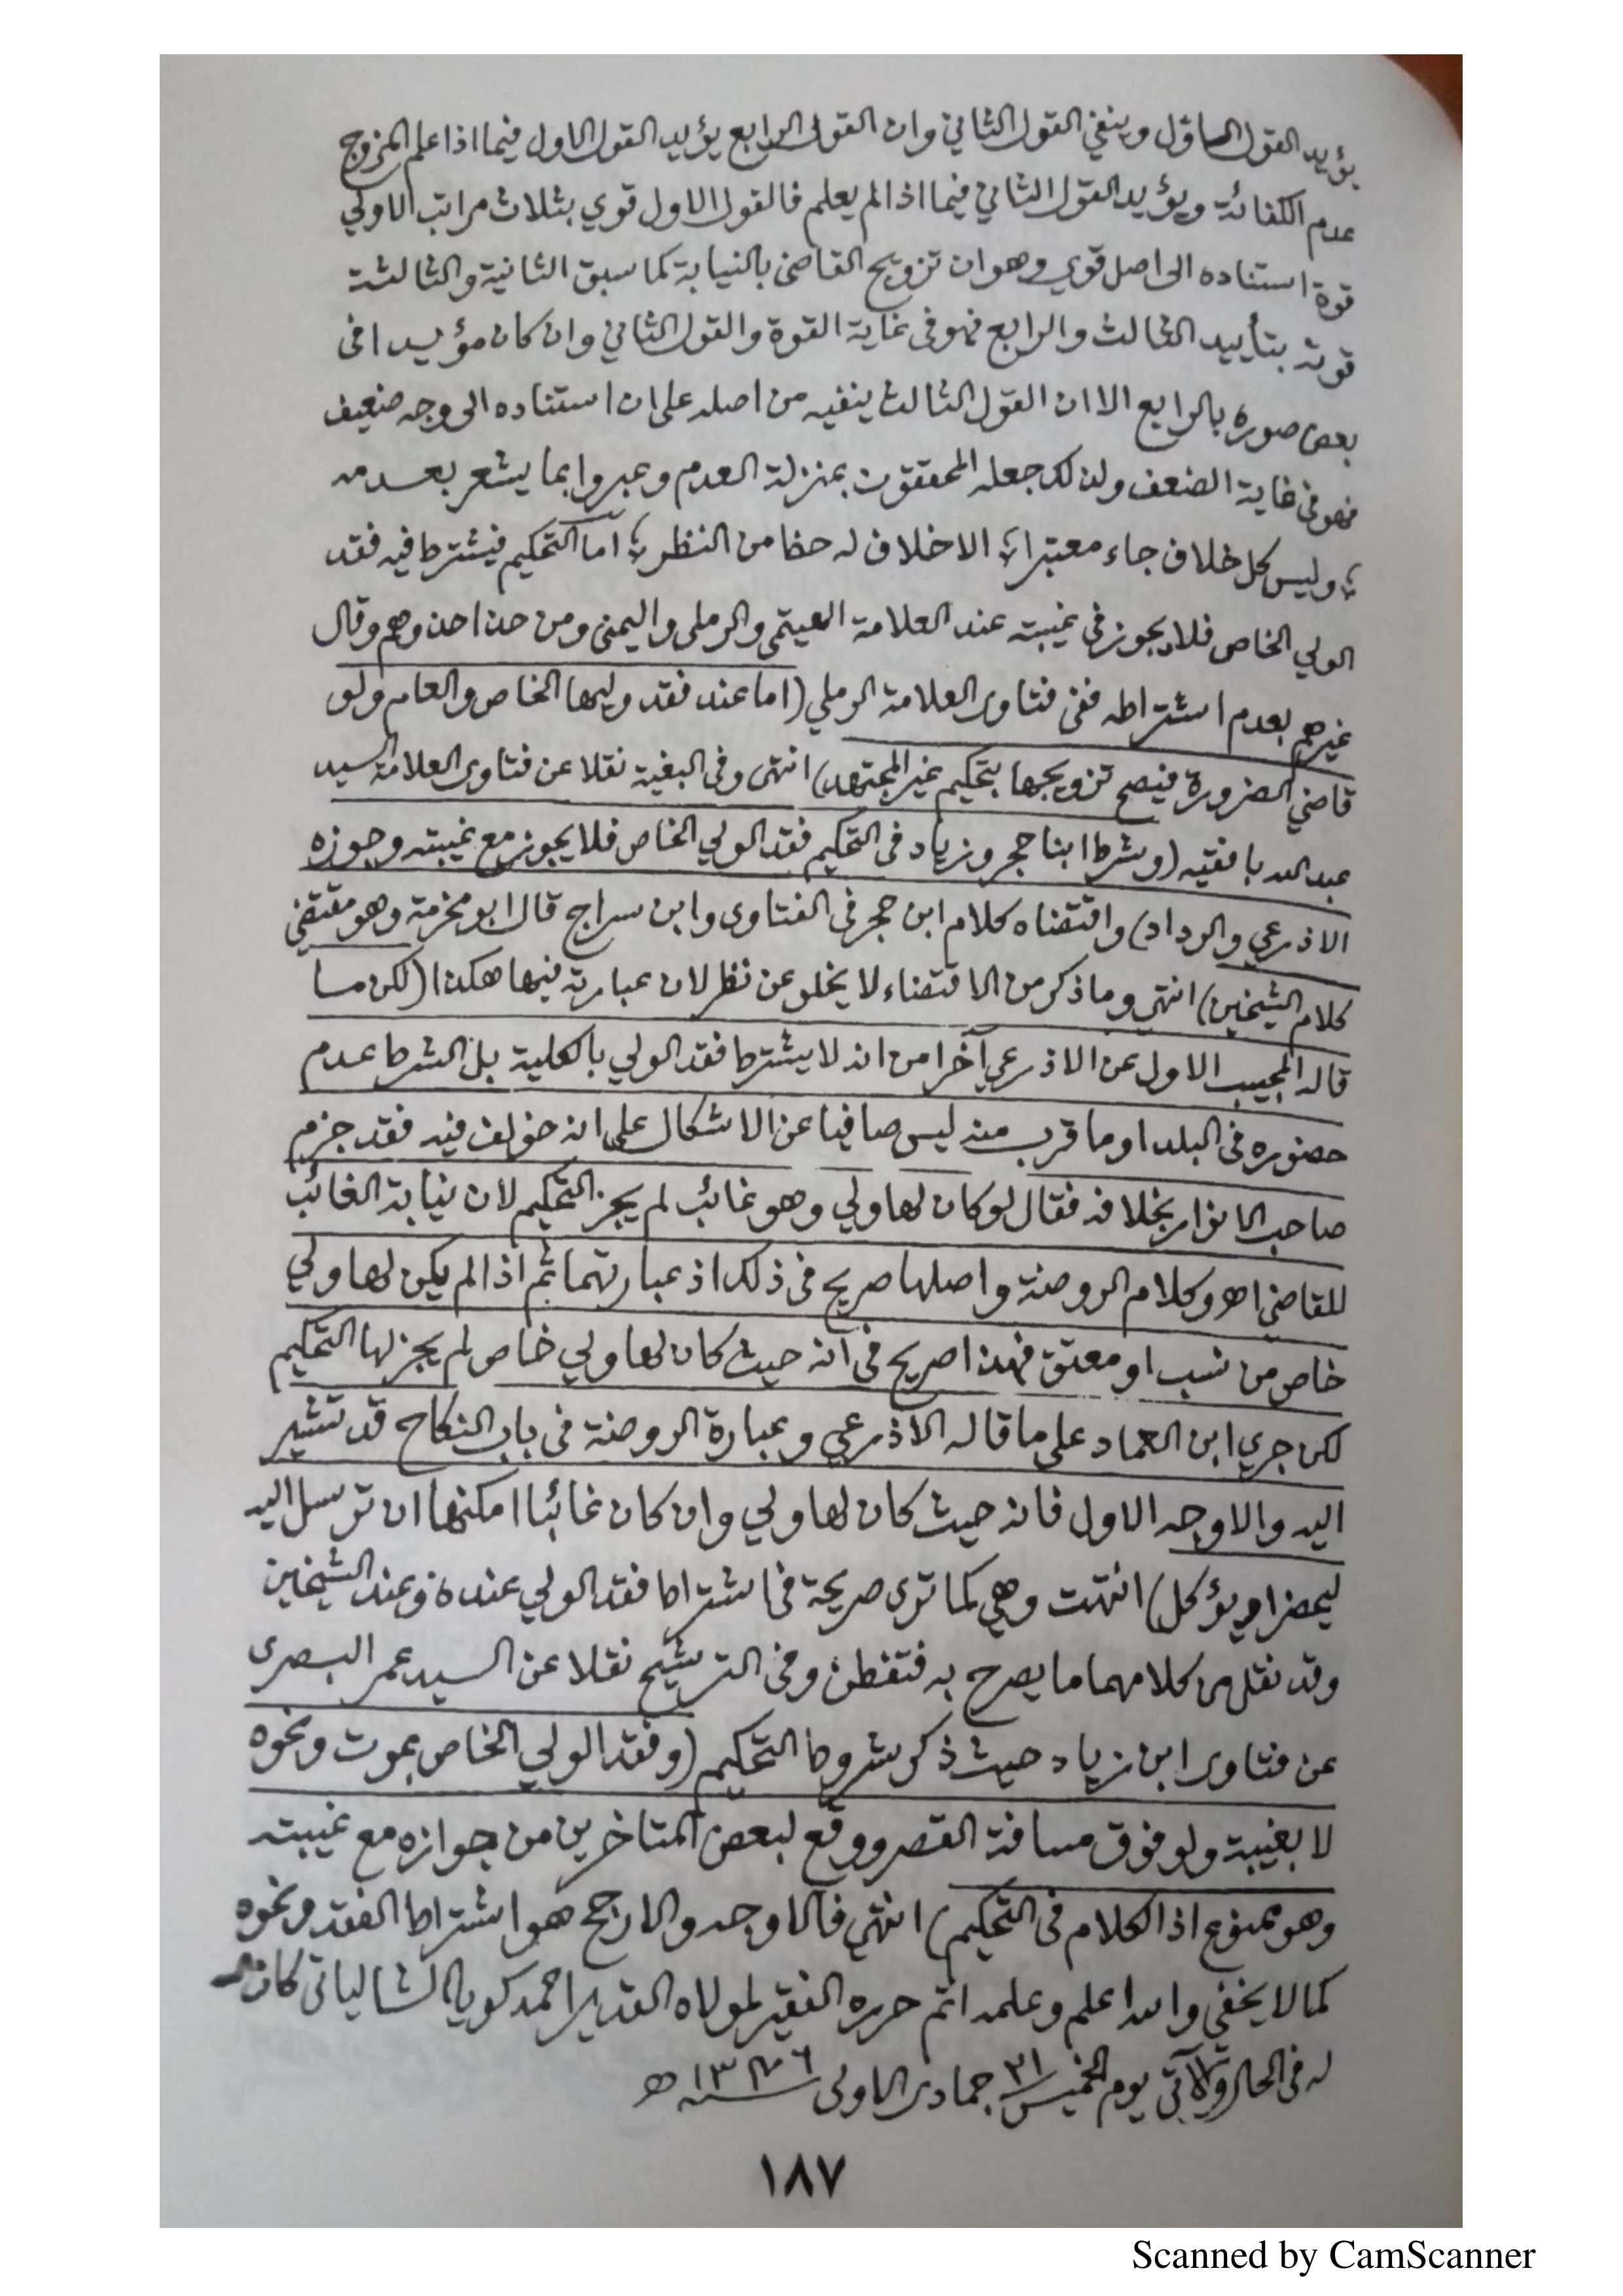 يؤيد القول الاول وينفي القول الثاني وان القول الرابع يؤيد القول الاول فيما اذا علم المزوج
عدم الكفائة ويؤيد القول الثاني فيما اذا لم يعلم فالقول الاول قوي بثلاث مراتب الاولى
قوة استناده الى اصل قوي وهو ان تزويج القاضى بالنيابة كما سبق الثانية والثالثة
قوته بتأييد الثالث والرابع فهو فى غاية القوة والقول الثاني وان كان مؤيدا فى
بعض صوره بالرابع الا ان القول الثالث ينفيه من اصله على ان استناده الى وجه ضعيف
فهو فى غاية الضعف ولذلك جعله المحققون بمنزلة العدم وعبروا بما يشعر بعدمه
؛ وليس كل خلاف جاء معتبرا ؛ الا خلاف له حظ من النظر ؛ اما التحكيم فيشترط فيه فقد
الولي الخاص فلا يجوز فى غيبته عند العلامة الهيتمى والرملى واليمنى ومن حذا حذوهم وقال
غيرهم بعدم اشتراطه ففى فتاوى العلامة الرملي (اما عند فقد وليها الخاص والعام ولو
قاضي الضرورة فيصح تزويجها بتحكيم غير المجتهد) انتهى وفى البغية نقلا عن فتاوى العلامة السيد
عبد الله بافقيه (وشرط ابنا حجر وزياد فى التحكيم فقد الولي الخاص فلا يجوز مع غيبته وجوزه
الاذرعي والرداد) واقتضاه كلام ابن حجر فى الفتاوى وابن سراج قال ابو مخرمة وهو مقتضى
كلام الشيخين) انتهى وما ذكر من الاقتضاء لا يخلو عن نظر لان عبارته فيها هكذا (لكن ما
قاله المجيب الاول عن الاذرعي آخرا من انه لا يشترط فقد الولي بالكلية بل الشرط عدم
حضوره فى البلد او ما قرب منه ليس صافيا عن الاشكال على انه خولف فيه فقد جزم
صاحب الانوار بخلافه فقال لو كان لها ولي وهو غائب لم يجز التحكيم لان نيابة الغائب
للقاضى اهـ وكلام الروضة واصلها صريح فى ذلك اذ عبارتهما ثم اذا لم يكن لها ولي
خاص من نسب او معتق فهذا صريح فى انه حيث كان لها ولي خاص لم يجز لها التحكيم
لكن جرى ابن العماد على ما قاله الاذرعي وعبارة الروضة فى باب النكاح قد تشير
اليه والاوجه الاول فانه حيث كان لها ولي وان كان غائبا امكنها ان ترسل اليه
ليحضر او يؤكل) انتهت وهي كما ترى صريحة فى اشتراط فقد الولي عنده وعند الشيخين
وقد نقل من كلامهما ما يصرح به فتفطن وفى الترشيح نقلا عن السيد عمر البصرى
عن فتاوى ابن زياد حيث ذكر شروط التحكيم (وفقد الولي الخاص بموت ونحوه
لا بغيبة ولو فوق مسافة القصر ووقع لبعض المتاخرين من جوازه مع غيبته
وهو ممنوع اذ الكلام فى التحكيم) انتهى فالاوجه والارجح هو اشتراط الفقد ونحوه
كما لا يخفى والله اعلم وعلمه اتم حرره الفقير لمولاه القدير احمد كويا الشالياتى كان
له فى الحال والآتى يوم الخميس ٢١ جمادى الاولى سنة ١٣٧٦ هـ
١٨٧
Scanned by CamScanner